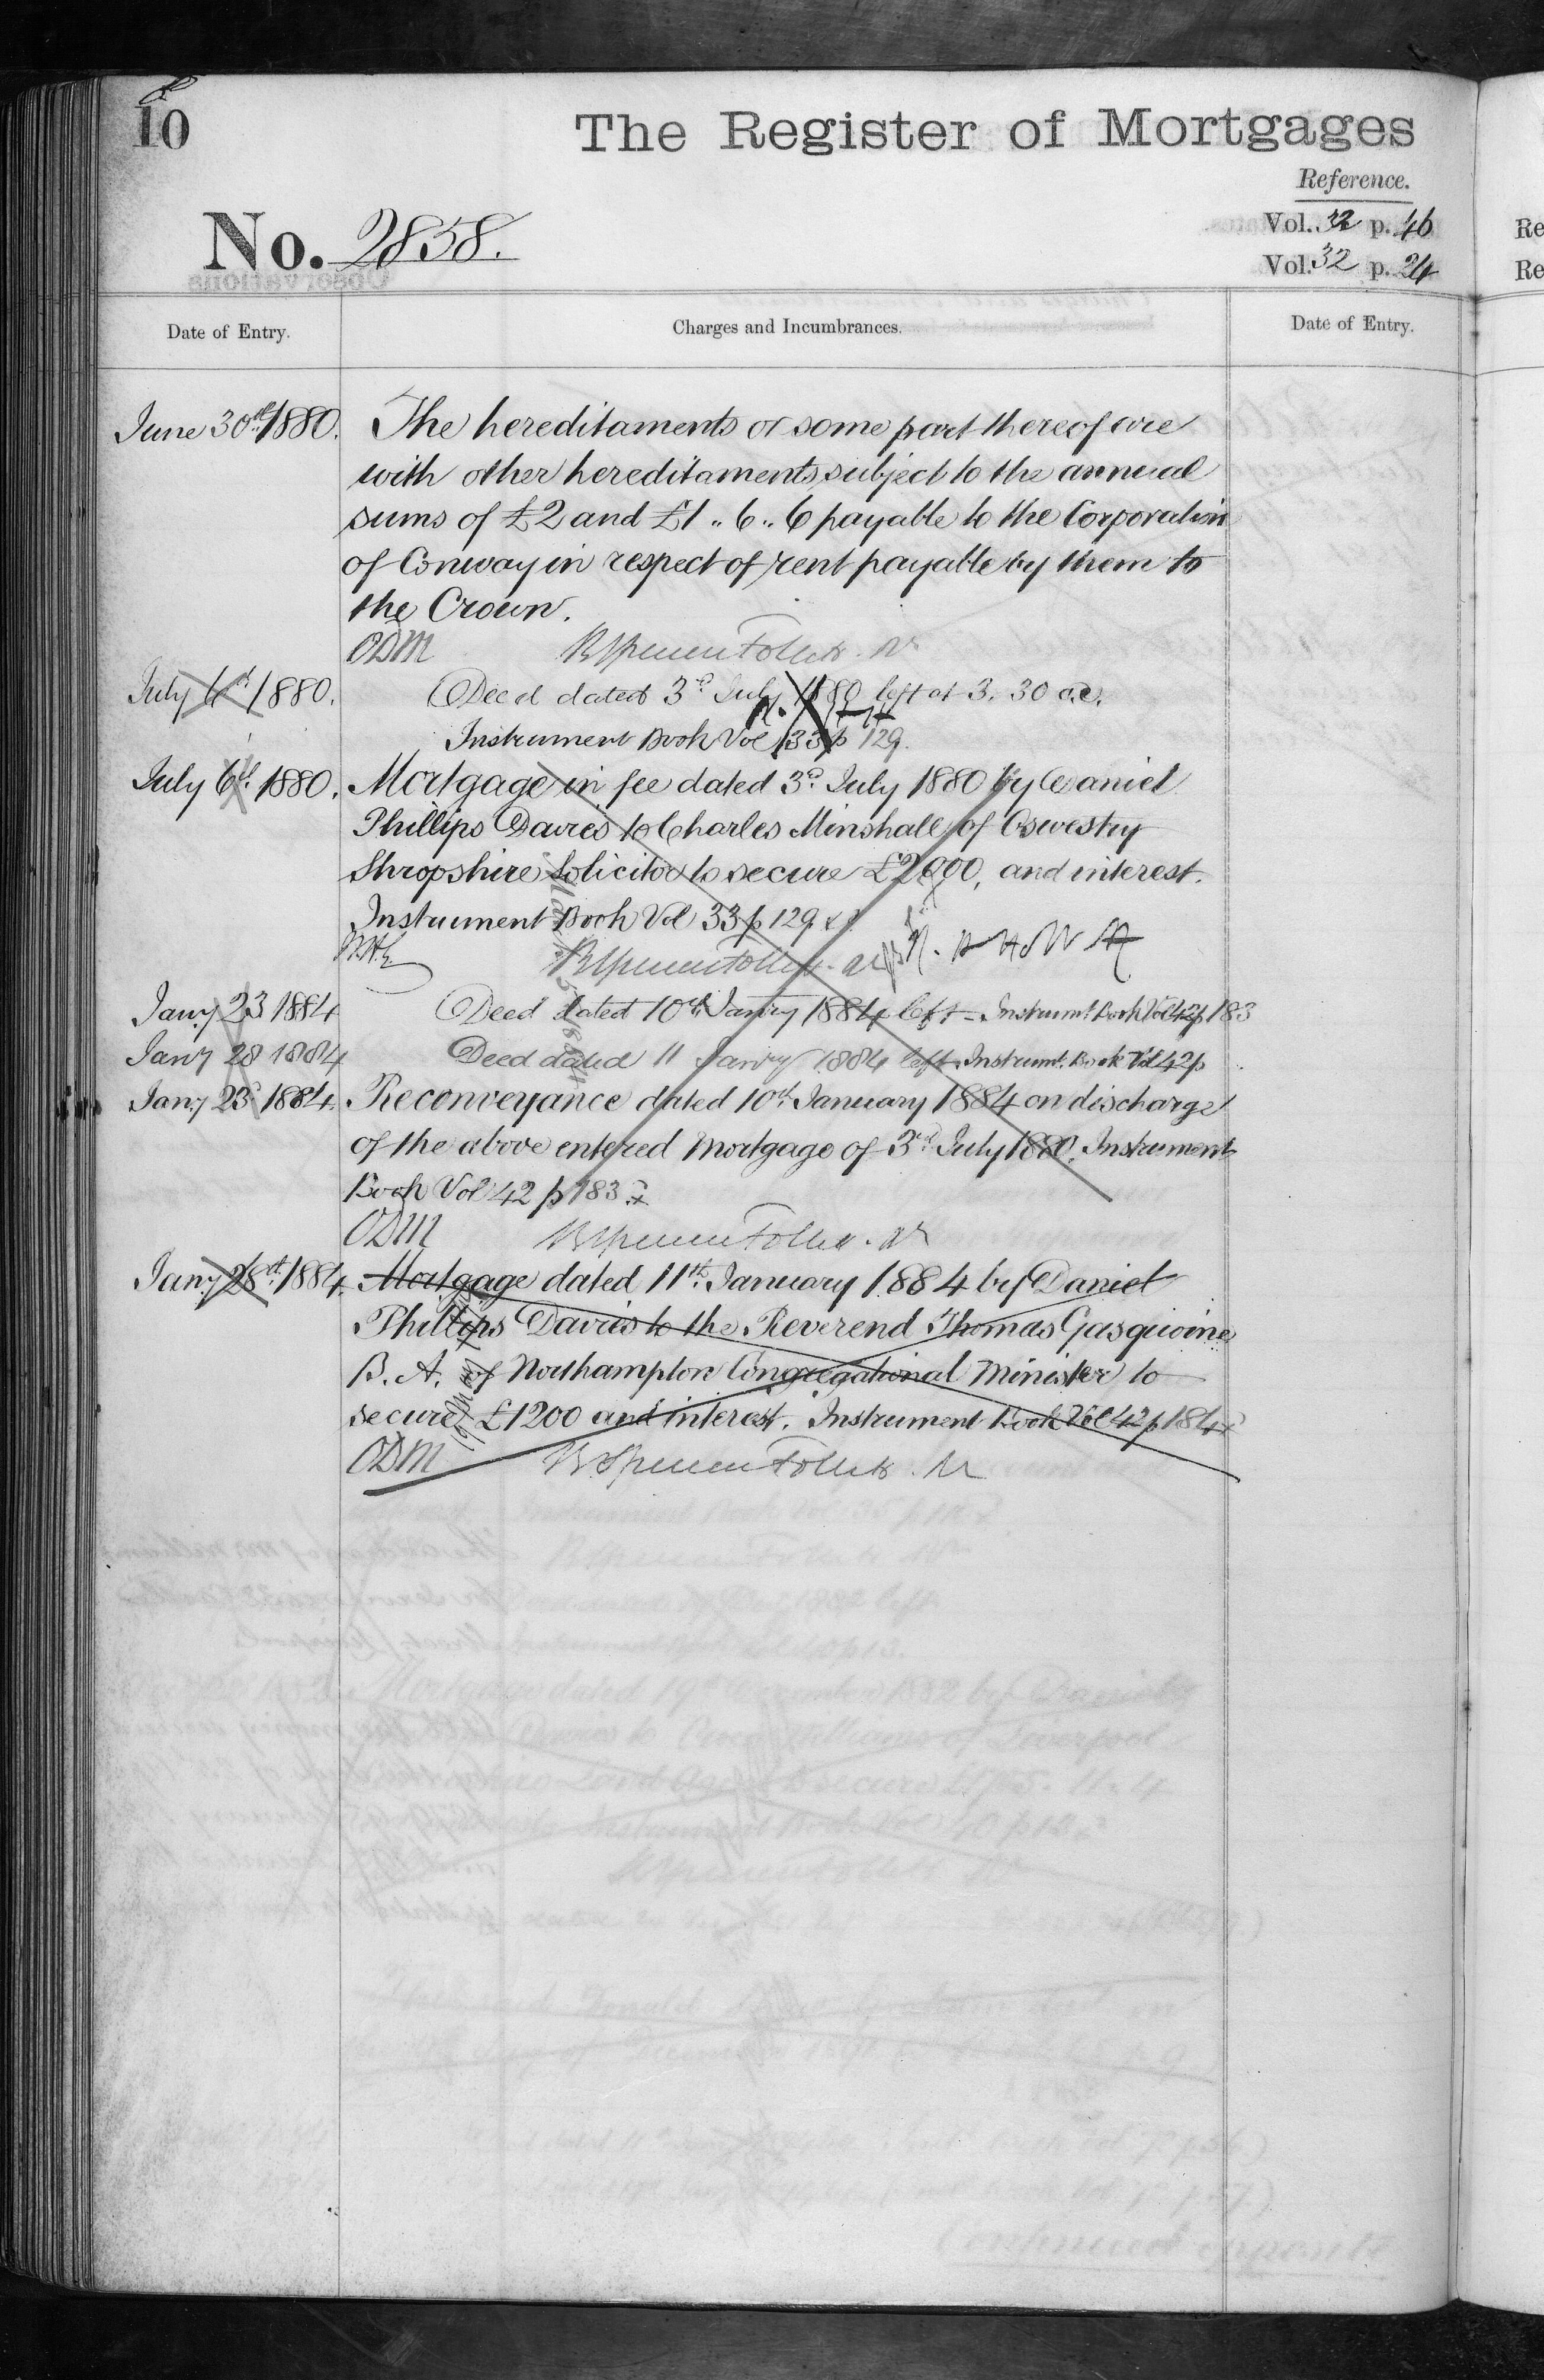 10
The Register of Mortgages
Reference.
No. 2858.
Vol. 32 p. 46
Vol. 32 p. 24
Re
Re
Date of Entry.
Charges and Incumbrances.
Date of Entry.
June 30th 1880. The hereditaments or some part thereof are
with other hereditaments subject to the annual
sums of £2 and £1 .. 6 .. 6 payable to the Corporation
of Conway in respect of rent payable by them to
the Crown.
ODM
July 6th 1880. Deed dated 3d July 1880 left at 3. 30
Instrument Book Vol 33 p 129.
July 6th 1880. Mortgage in fee dated 3d July 1880 by Daniel
Phillips Davies to Charles Minshall of Oswestry
Shropshire Solicitor to secure £2000, and interest.
Instrument Book Vol 33 p 129
Jany 23 1884 Deed dated 10th Janry 1884 left - Instrumt Book Vol 42 p 183
Jany 28 1884 Deed dated 11 Janry 1884 left Instrumt. Book Vol 42 p
Jany 23 1884. Reconveyance dated 10th January 1884 on discharge
of the above entered Mortgage of 3rd July 1880. Instrument
Book Vol 42 p 183
ODM
Jany 28th 1884. Mortgage dated 11th January 1884 by Daniel
Phillips Davies to the Reverend Thomas Gasquoine
B. A. of Northampton Congregational Minister to
secure £1200 and interest. Instrument Book Vol 42 p 184
ODM